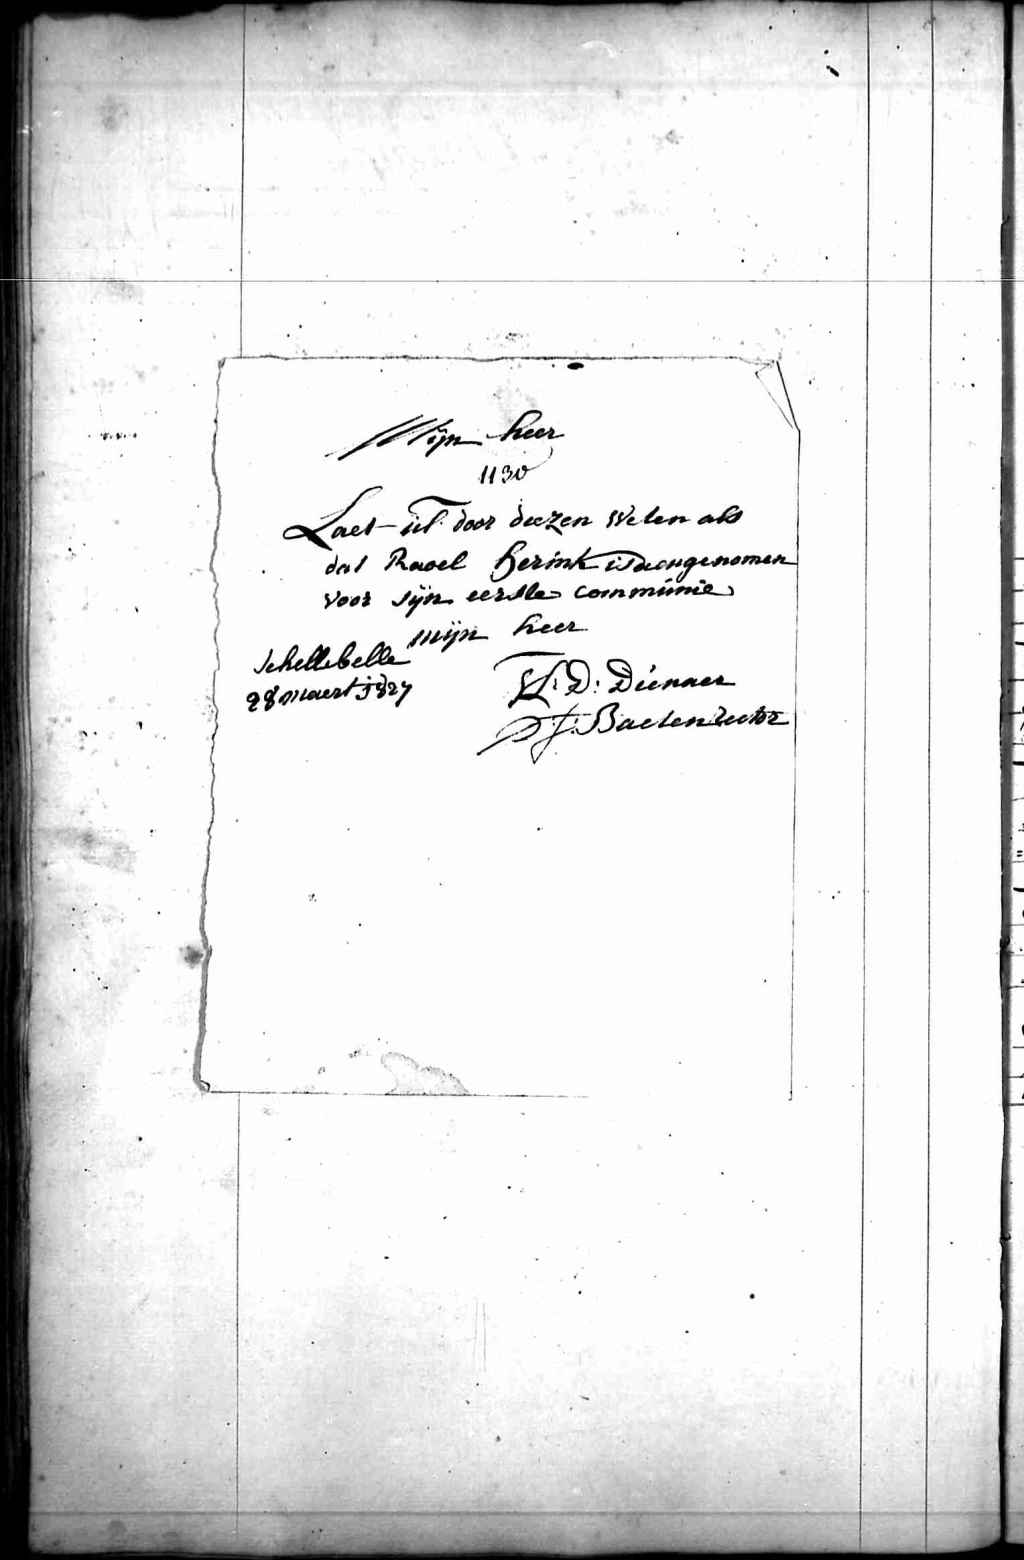 Mijn heer
1130
Laet ul door deezen weten als
dat Raoel herink is aengenomen
voor sijn eerste communie
mijn heer
Schellebelle
28 maert 1827
Ul: D: Dienaer
Baeten Rector